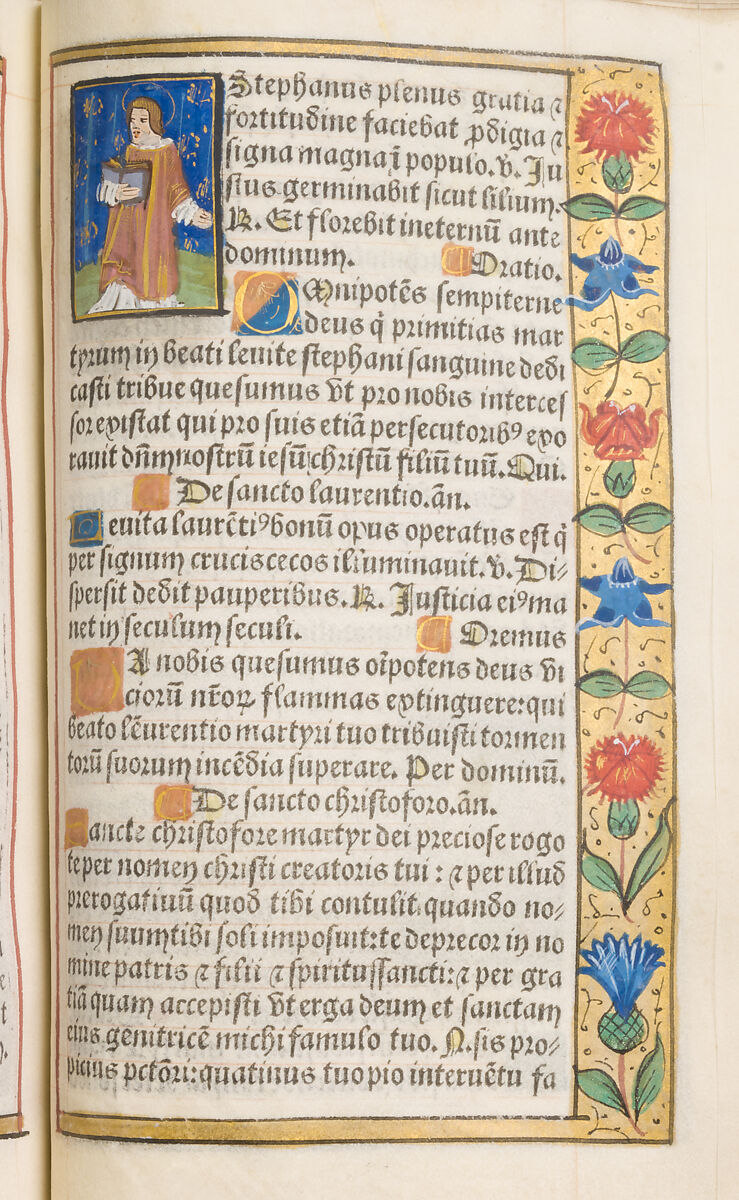 Stephanus plenus gratia ⁊
fortitudine faciebat ꝓdigia ⁊
signa magna ī populo. ꝟ. Ju
stus germinabit sicut lilium.
℟. Et florebit ineternū ante
dominum. Oratio.
Omnipotēs sempiterne
deus q̄ primitias mar
tyrum in beati leuite stephani sanguine dedi
casti tribue quesumus vt pro nobis interces
sor existat qui pro suis etiā persecutoribꝰ exo
rauit dn̄m nostrū iesū christū filiū tuū. Qui.
De sancto laurentio. an̄.
Leuita laurētiꝰ bonū opus operatus est q̄
per signum crucis cecos illuminauit. ꝟ. Di-
spersit dedit pauperibus. ℟. Justicia eiꝰ ma
net in seculum seculi. Oremus
DA nobis quesumus oīpotens deus vi
ciorū nr̄oꝝ flammas extinguere: qui
beato lēurentio martyri tuo tribuisti tormen
torū suorum incēdia superare. Per dominū.
De sancto christoforo. an̄.
Sancte christofore martyr dei preciose rogo
te per nomen christi creatoris tui: ⁊ per illud
prerogatiuū quod tibi contulit quando no-
men suum tibi soli imposuit: te deprecor in no
mine patris ⁊ filii ⁊ spiritussancti: ⁊ per gra
tiā quam accepisti vt erga deum et sanctam
eius genitricē michi famulo tuo. N. sis pro-
picius pctōri: quatinus tuo pio interuētu fa